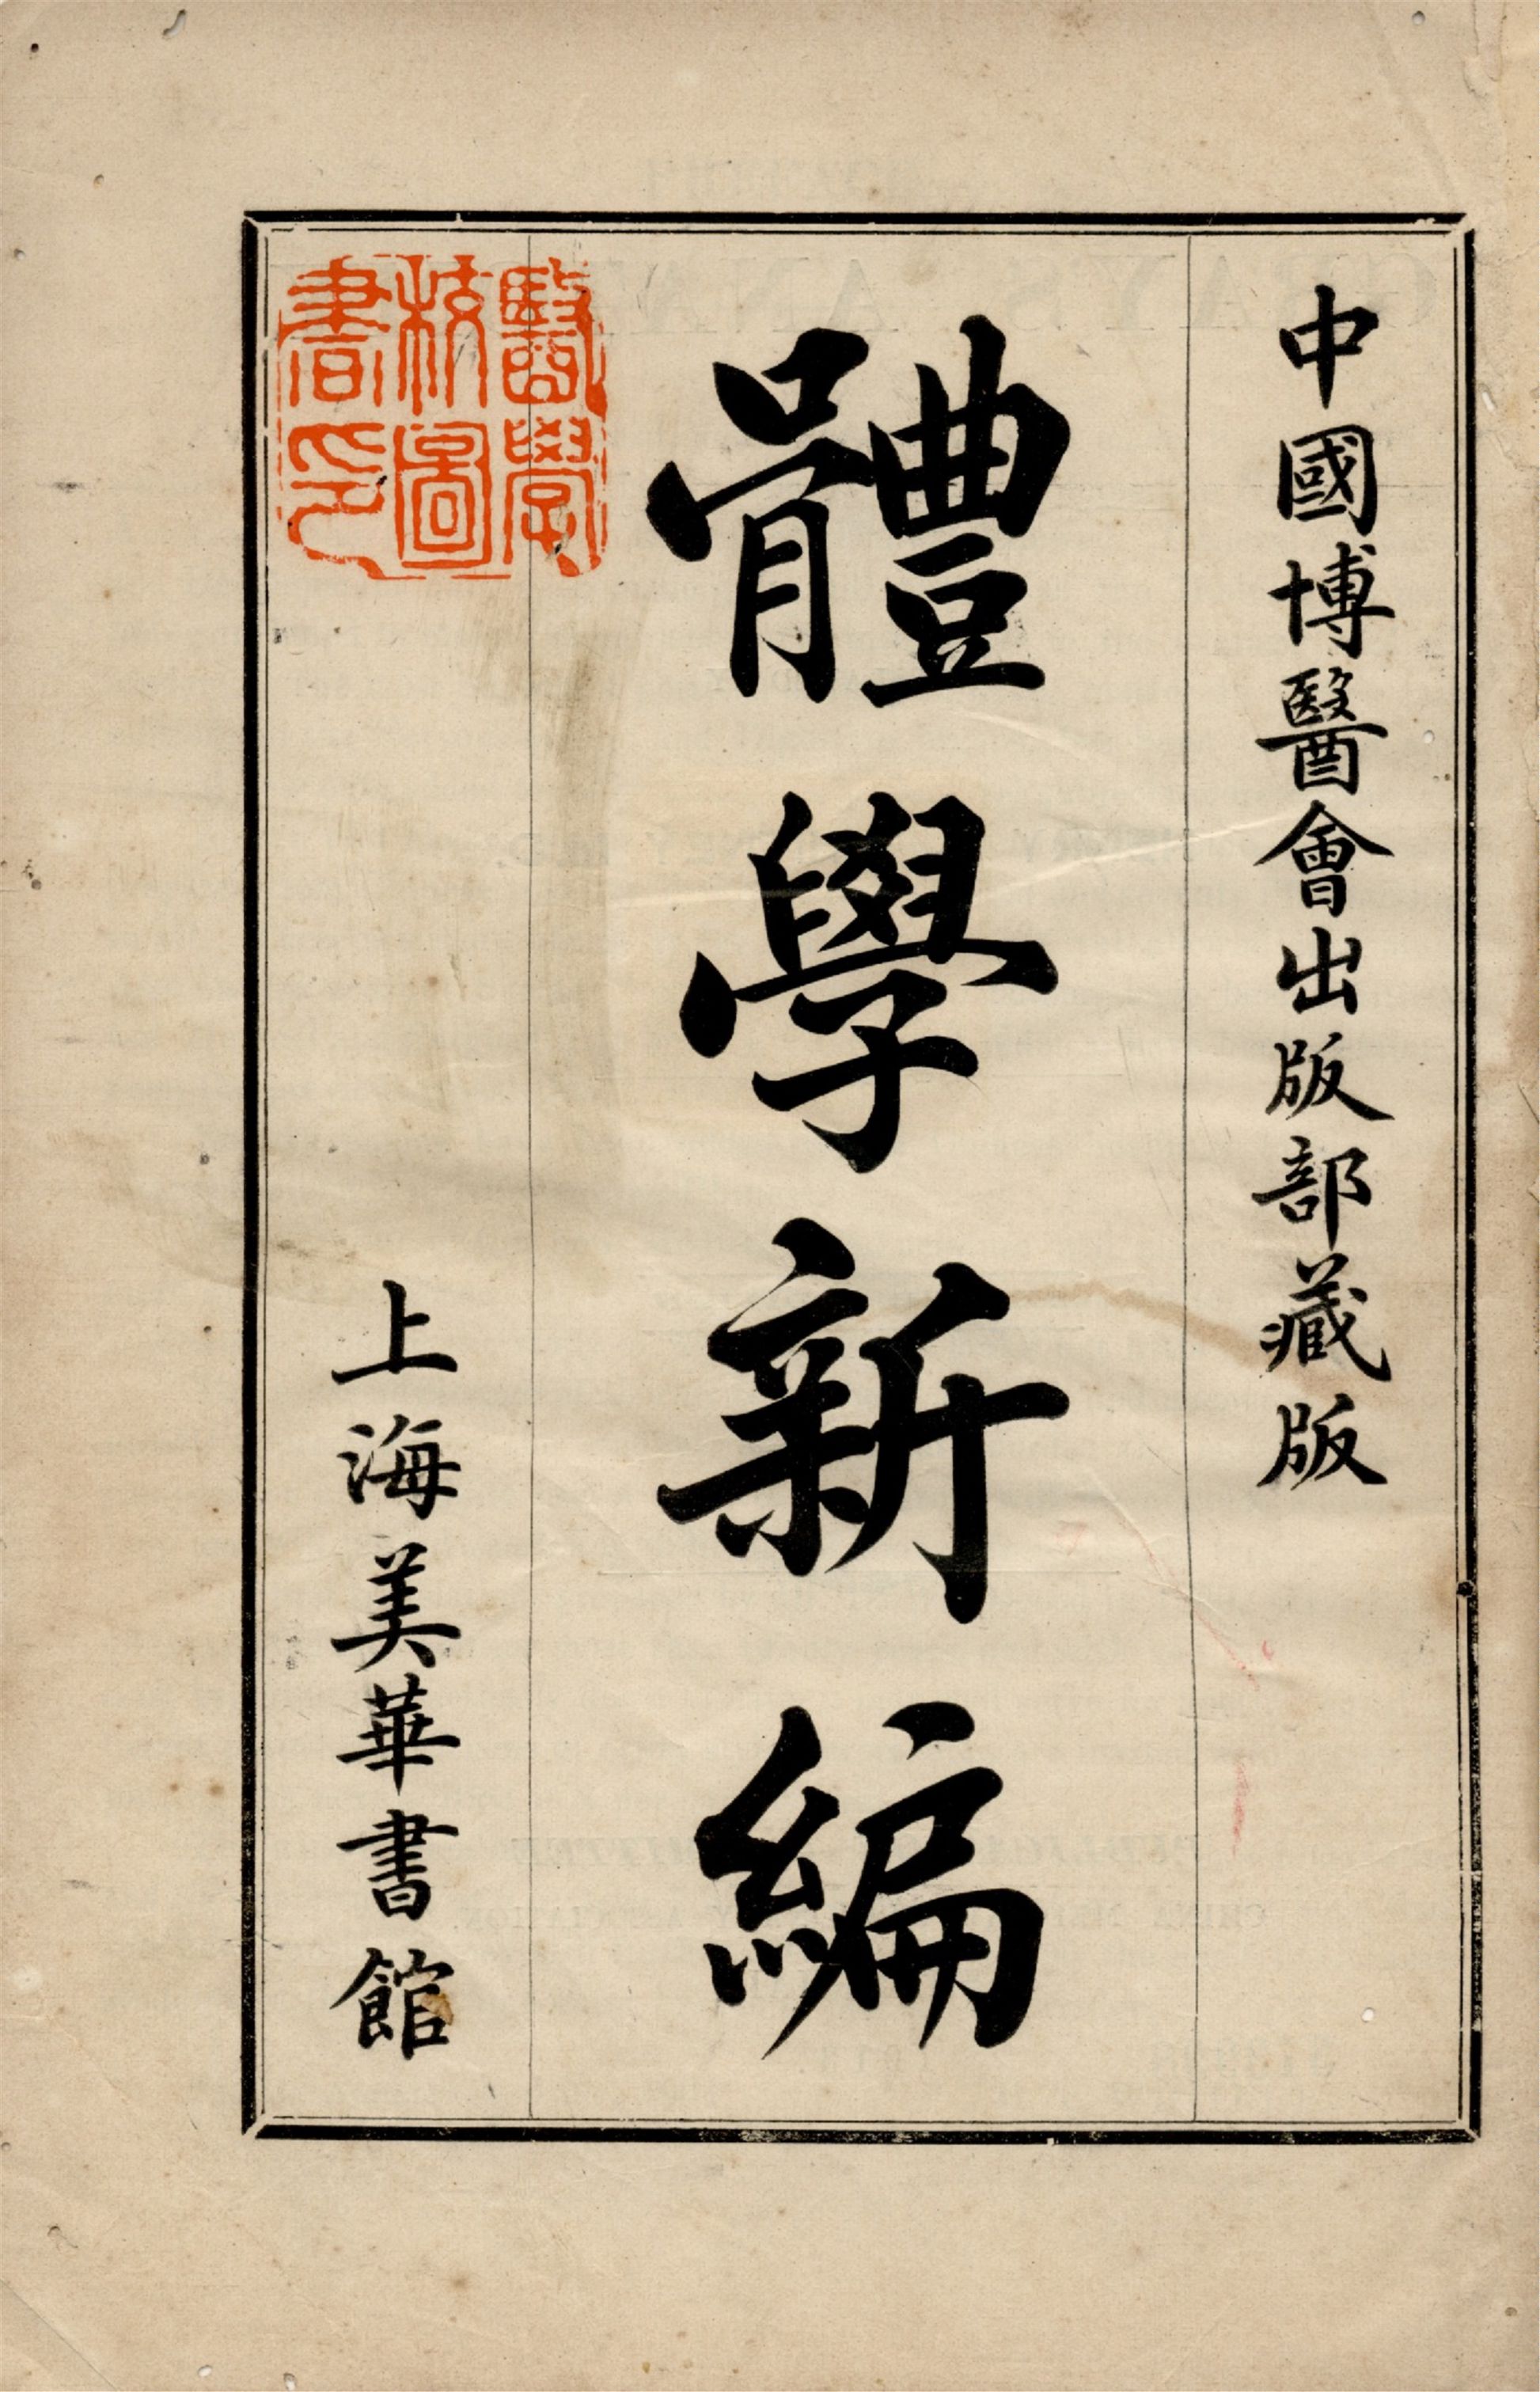 中國博醫會出版部藏版
體學新編
上海美華書館
醫學
校圖
書印